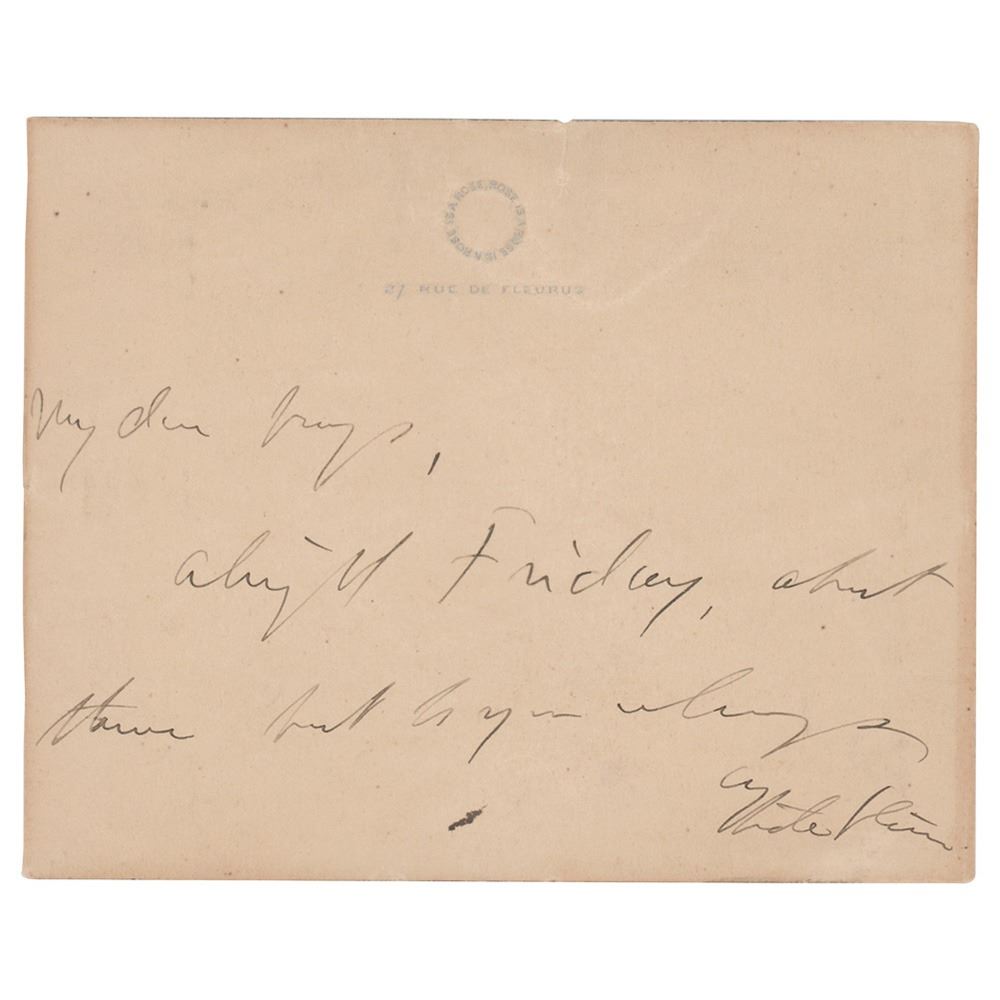 ROSE IS A ROSE IS A ROSE IS A ROSE
27 RUE DE FLEURUS
My dear
alright Friday, about
but to you always
Gertrude Stein